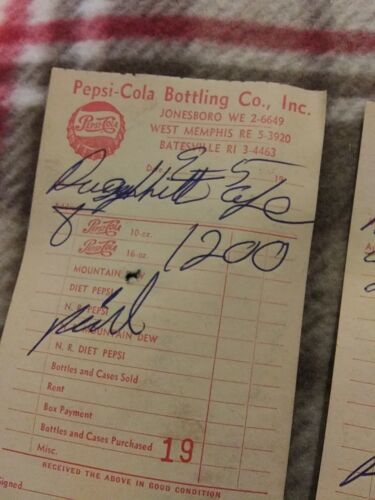 Pepsi-Cola Bottling Co., Inc.
JONESBORO WE 2-6649
WEST MEMPHIS RE 5-3920
BATESVILLE RI 3-4463
Pepsi-Cola
Date 9-5 19
Cafe
8 Pepsi-Cola 10-oz. 1200
Pepsi-Cola 16-oz.
MOUNTAIN
DIET PEPSI
N. R. PEPSI
MOUNTAIN DEW
N. R. DIET PEPSI
Bottles and Cases Sold
Rent
Box Payment
Bottles and Cases Purchased
Misc. 19
RECEIVED THE ABOVE IN GOOD CONDITION
Signed